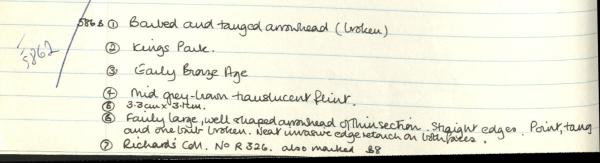 5862
586B ① Barbed and tanged arrowhead (broken)
② Kings Park.
③ Early Bronze Age
④ Mid grey-brown translucent flint.
⑤ 3.3cm x 3.1cm.
⑥ Fairly large, well shaped arrowhead of thin section. Straight edges. Point, tang
and one barb broken. Neat invasive edge retouch on both faces.
⑦ Richards Coll. No R 326. also marked 88